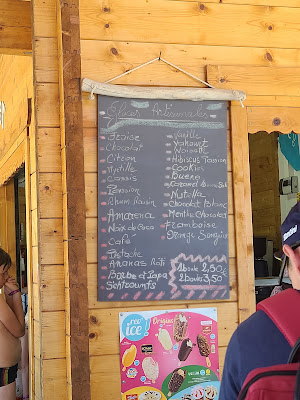 Glaces Artisanales
Fraise
Chocolat
Citron
Myrtille
Cassis
Passion
Rhum Raisin
Amarena
Noix de Coco
Café
Pistache
Ananas Rôti
Barbe à Papa
Schtroumfs
Vanille
Yahourt
Noisette
Hibiscus Passion
Cookies
Bueno
Caramel Beurre Salé
Nutella
Chocolat Blanc
Menthe Chocolat
Framboise
Orange Sanguine
1 boule 2,50€
2 boules 3,50€
ice!
Original